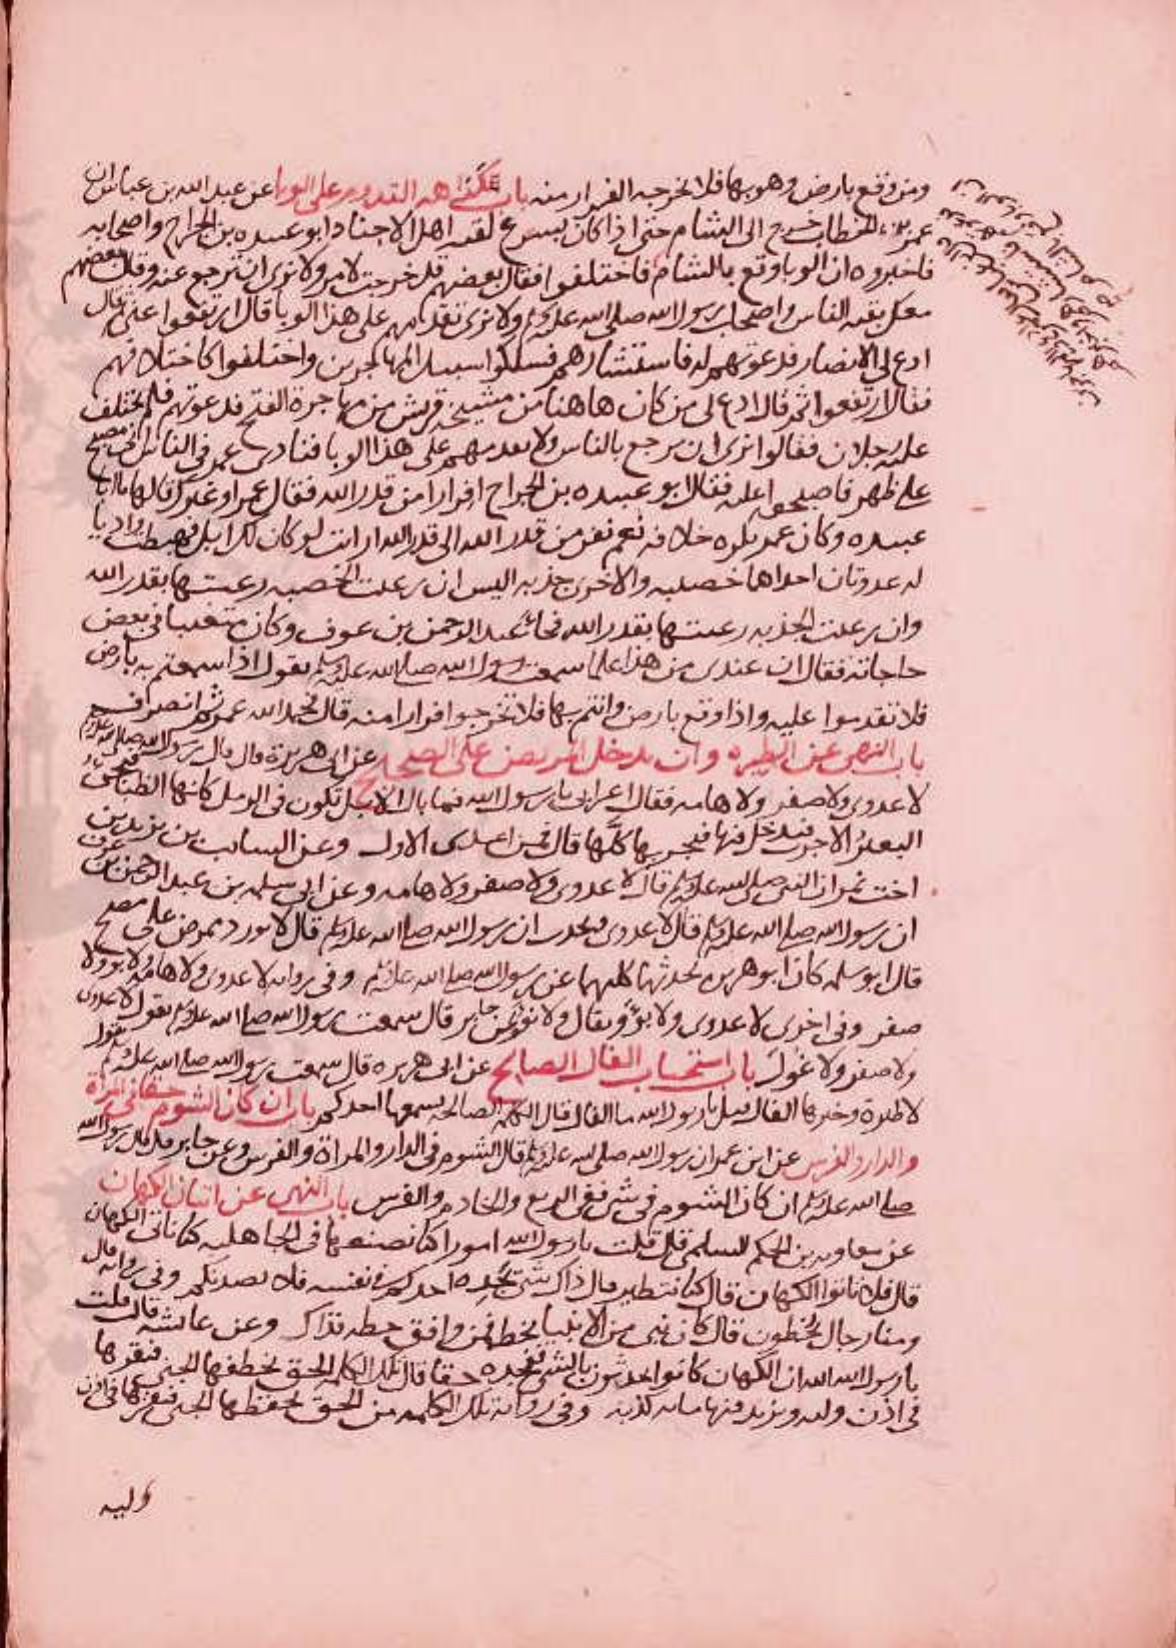 ومن وقع بارض وهو بها فلا تخرجه الفرار منه باب كراهة القدوم على الوبا عن عبد الله بن عباس ان
عمر بن الخطاب خرج الى الشام حتى اذا كان بسرغ لقيه اهل الاجناد ابو عبيده بن الجراح واصحابه
فاخبروه ان الوبا وقع بالشام فاختلفوا فقال بعضهم قد خرجت لامر ولا نرى ان ترجع عنه وقال بعضهم
معك بقية الناس واصحاب رسول الله صلى الله عليه وسلم ولا نرى تقدمهم على هذا الوبا قال ارتفعوا عني قال
ادع لي الانصار فدعوتهم له فاستشارهم فسلكوا سبيل المهاجرين واختلفوا كاختلافهم
فقال ارتفعوا ثم قال ادع لي من كان هاهنا من مشيخة قريش من مهاجرة الفتح فدعوتهم فلم يختلف
عليه رجلان فقالوا نرى ان ترجع بالناس ولا تقدمهم على هذا الوبا فنادى عمر في الناس اني مصبح
على ظهر فاصبحوا عليه فقال ابو عبيده بن الجراح افرارا من قدر الله فقال عمر لو غيرك قالها يا ابا
عبيده وكان عمر يكره خلافه نعم نفر من قدر الله الى قدر الله ارايت لو كان لك ابل فهبطت واديا
له عدوتان احداهما خصبه والاخرى جذبه اليس ان رعيت الخصبه رعيتها بقدر الله
وان رعيت الجذبه رعيتها بقدر الله فجاء عبد الرحمن بن عوف وكان متغيبا في بعض
حاجاته فقال ان عندي من هذا علما سمعت رسول الله صلى الله عليه وسلم يقول اذا سمعتم به بارض
فلا تقدموا عليه واذا وقع بارض وانتم بها فلا تخرجوا فرارا منه قال فحمد الله عمر ثم انصرف
باب النهي عن الطيره وان يدخل الممرض على الصحيح عن ابي هريرة قال قال رسول الله صلى الله عليه وسلم
لا عدوى ولا صفر ولا هامه فقال اعرابي يا رسول الله فما بال الابل تكون في الرمل كانها الظبا فيجئ
البعير الاجرب فيدخل فيها فيجربها كلها قال فمن اعدى الاول وعن السائب بن يزيد بن
اخت نمر ان النبي صلى الله عليه وسلم قال لا عدوى ولا صفر ولا هامه وعن ابي سلمه بن عبد الرحمن بن عوف
ان رسول الله صلى الله عليه وسلم قال لا عدوى ويحدث ان رسول الله صلى الله عليه وسلم قال لا يورد ممرض على مصح
قال ابو سلمه كان ابو هريره يحدثهما كليهما عن رسول الله صلى الله عليه وسلم وفي روايه لا عدوى ولا هامه ولا نوء ولا
صفر وفي اخرى لا عدوى ولا نوء جابر قال سمعت رسول الله صلى الله عليه وسلم يقول لا عدوى
ولا صفر ولا غول باب استحباب الفال الصالح عن ابي هريره قال سمعت رسول الله صلى الله عليه وسلم يقول
لا طيرة وخيرها الفال قيل يا رسول الله ما الفال قال الكلمة الصالحه يسمعها احدكم باب ان كان الشوم حقا ففي المراة
والدار والفرس عن ابن عمر ان رسول الله صلى الله عليه وسلم قال الشوم في الدار والمراة والفرس وعن جابر قال قال رسول الله
صلى الله عليه وسلم ان كان الشوم في شي ففي الربع والخادم والفرس باب النهي عن اتيان الكهان
عن معاويه بن الحكم السلمي قال قلت يا رسول الله امورا كنا نصنعها في الجاهليه كنا ناتي الكهان
قال فلا تاتوا الكهان قال كنا نتطير قال ذاك شي يجده احدكم في نفسه فلا يصدنكم وفي روايه قال
ومنا رجال يخطون قال كان نبي من الانبيا يخط فمن وافق خطه فذاك وعن عائشه قالت قلت
يا رسول الله ان الكهان كانوا يحدثون بالشي فنجده حقا قال تلك الكلمه الحق يخطفها الجني فيقرها
في اذن وليه ويزيد فيها مايه كذبه وفي رواية تلك الكلمه من الحق يخطفها الجني فيقرها في اذن
وليه